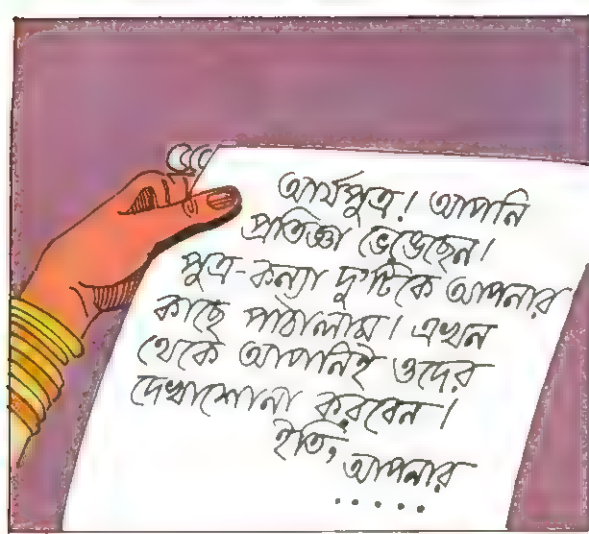 আর্যপুত্র! আপনি
প্রতিজ্ঞা ভেঙেছেন।
পুত্র-কন্যা দু'টিকে আপনার
কাছে পাঠালাম। এখন
থেকে আপনিই ওদের
দেখাশোনা করবেন।
ইতি,
আপনার
.....